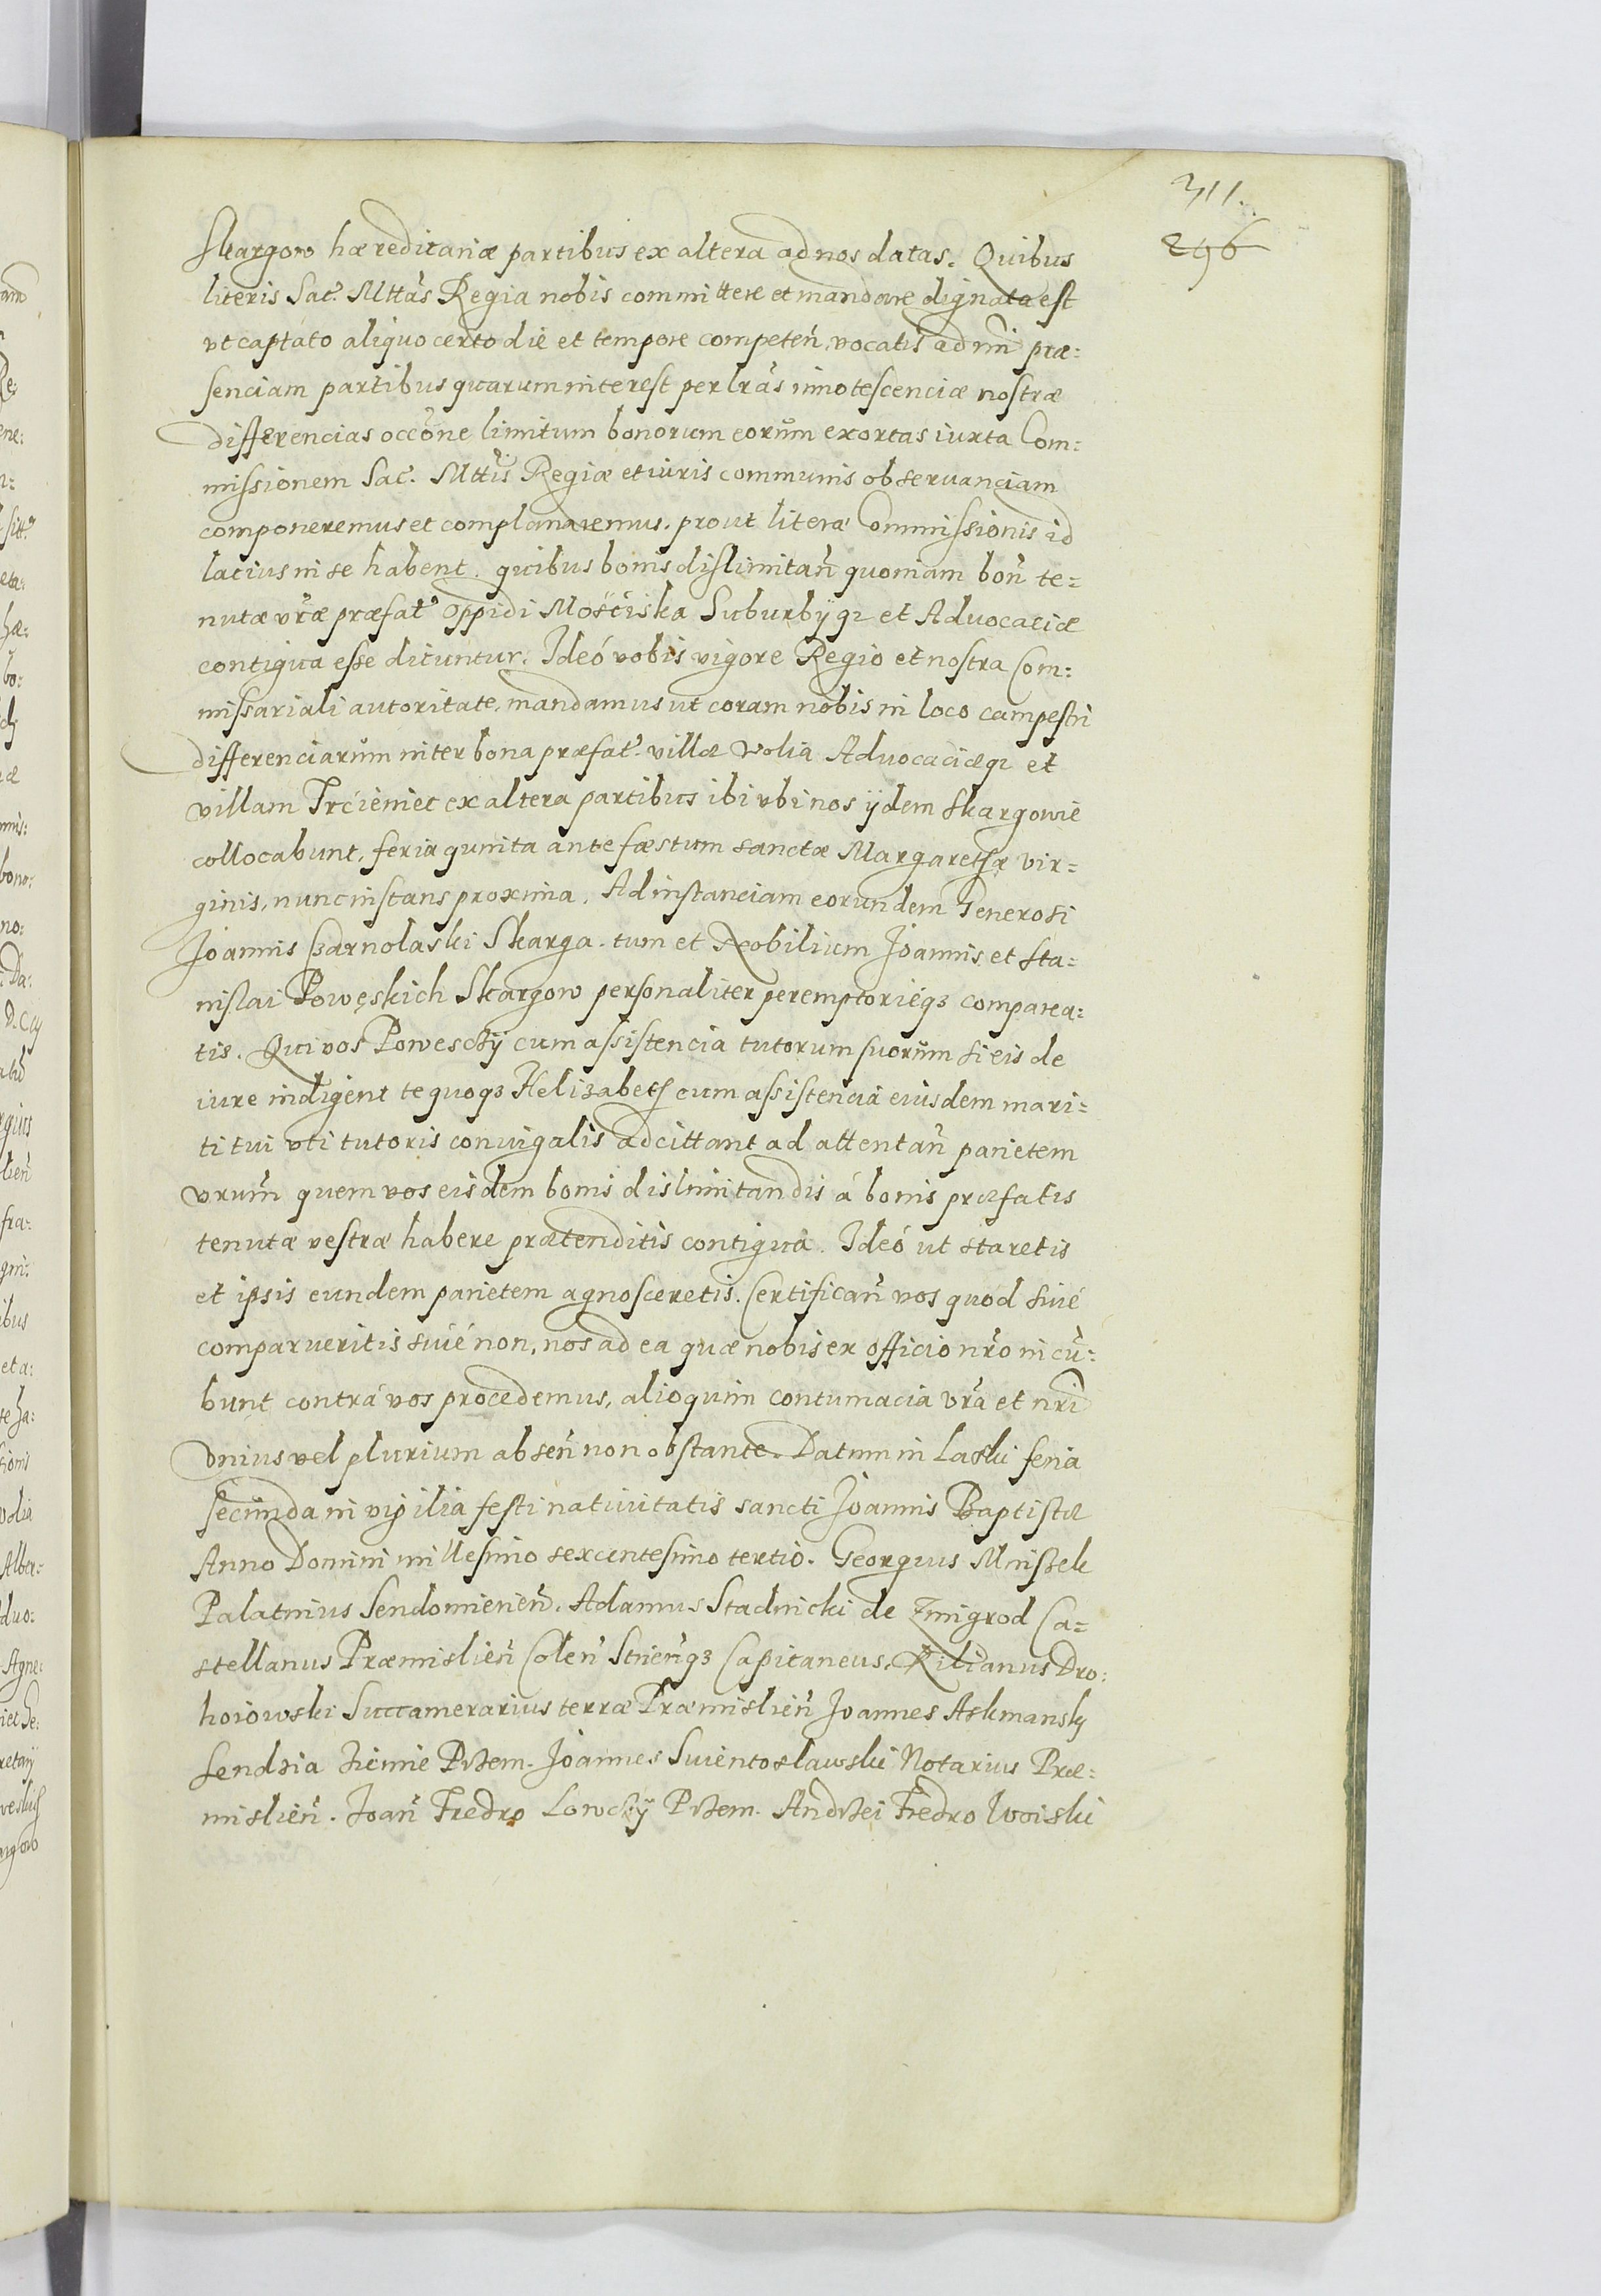 311.
296
Skargow hæreditariæ partibus ex altera ad nos datas. Quibus
literis Sac. Mttãs Regia nobis committere et mandare dignata est
vt captato aliquo certo die et tempore competeñ, vocatis ad nrĩ præ=
senciam partibus quarum interest per lrãs innotescenciæ nostræ
differencias occõne limitum bonorum eorum exortas iuxta Com=
missionem Sac. Mttis Regiæ et iuris communis obseruanciam
componeremus et complanaremus, prout literæ Commissionis id
lacius in se habent. quibus bonis dislimitañ quoniam boñ te=
nutæ vræ præfat. oppidi Mościska Suburbÿq₃ et Aduocatiæ
contigua esse dicuntur. Ideó vobis vigore Regio et nostra Com=
missariali autoritate, mandamus ut coram nobis in loco campestri
differenciarum inter bona præfat. villæ Volia Aduocaciæq₃ et
villam Trcieniec ex altera partibus ibi vbi nos ÿdem Skargowie
collocabunt, feria quinta ante fæstum sanctæ Margarethæ vir=
ginis, nunc instans proxima. Ad instanciam eorundem Generosi
Joannis Czarnolaski Skarga. tum et Nobilium Joannis et Sta=
nislai Powęskich Skargow personaliter peremptorieq₃ comparea=
tis. Qui vos Powesckÿ cum assistencia tutorum suorum si eis de
iure indigent te quoq₃ Helizabeth cum assistencia eiusdem mari=
ti tui vti tutoris coniugalis adcittant ad attentañ parietem
vrum̃ quem vos eisdem bonis dislimitandis á bonis præfatis
tenutæ vestræ habere prætenditis contigua. Ideó ut staretis
et ipsis eundem parietem agnosceretis. Certificañ vos quod siué
comparueritis siué non, nos ad ea quæ nobis ex officio nrõ incũ=
bunt contrá vos procedemus, alioquim contumacia vrã et nrĩ
vnius vel plurium abseñ non obstante. Datum in Laski feria
secunda in vigilia festi natiuitatis sancti Joannis Baptistæ
Anno Domini millesimo sexcentesimo tertio. Georgius Mniszek
Palatinus Sendomirieñ. Adamus Stadnicki de Zmigrod Ca=
stellanus Præmislieñ Coleñ Strieñq₃ Capitaneus, Kilianus Dro=
hoiowski Succamerarius terræ Præmislieñ Joannes Askmansky
Sendzia Ziemie Przem. Joannes Swientoslawski Notarius Præ=
mislieñ. Joañ Fredro Lowckÿ Przem. Andrzei Fredro Woiski